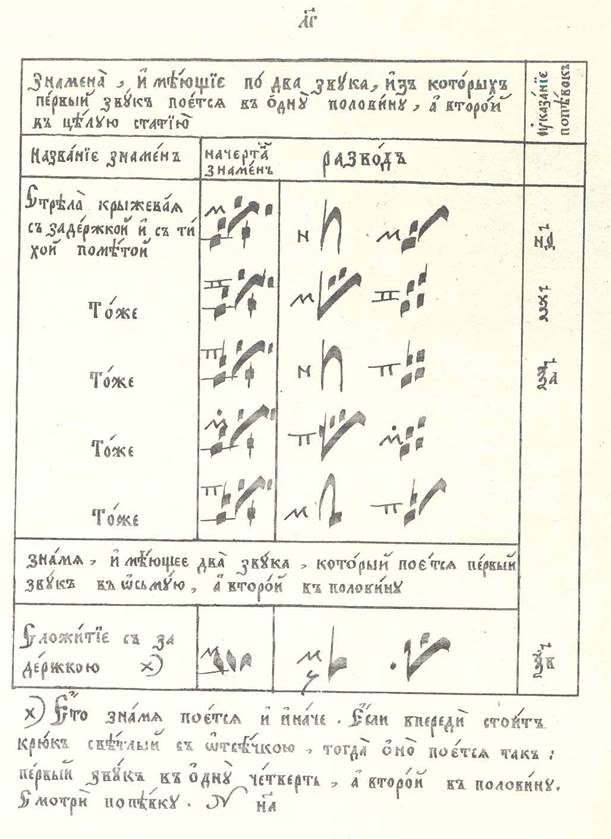 л҃г
Знаменà, и҆мѣ́ющїе по́ два звꙋ́ка, и҆зъ кото́рыхъ
пе́рвый звꙋ́къ пое́тся въ ѻ҆днꙋ̀ полови́нꙋ, а҆ второ́й
въ цѣ́лꙋю статїю̀
Оу҆каза́нїе
попѣ́вокъ
Назва́нїе знаме́нъ
начерта̑
знаме́нъ
разво́дъ
Стрѣла̀ крыжева́я
съ заде́ржкой и҆ съ ти
хой помѣ́той
То́же
То́же
То́же
То́же
Зна́мя, и҆мѣ́ющее два̀ звꙋ́ка, кото́рый пое́тся пе́рвый
звꙋ́къ въ ѻ҆сьмꙋ́ю, а҆ второ́й въ полови́нꙋ
Сложи́тїе съ за
де́ржкою х)
х) Е҆́то зна́мя пое́тся и҆ и҆на́че. Е҆́сли впередѝ стои́тъ
крю́къ свѣ́тлый съ ѿсѣ́чкою, тогда̀ ѻ҆но̀ пое́тся такъ:
пе́рвый звꙋ́къ въ ѻ҆днꙋ̀ че́тверть, а҆ второ́й въ полови́нꙋ.
Смотрѝ попѣ́вкꙋ. N